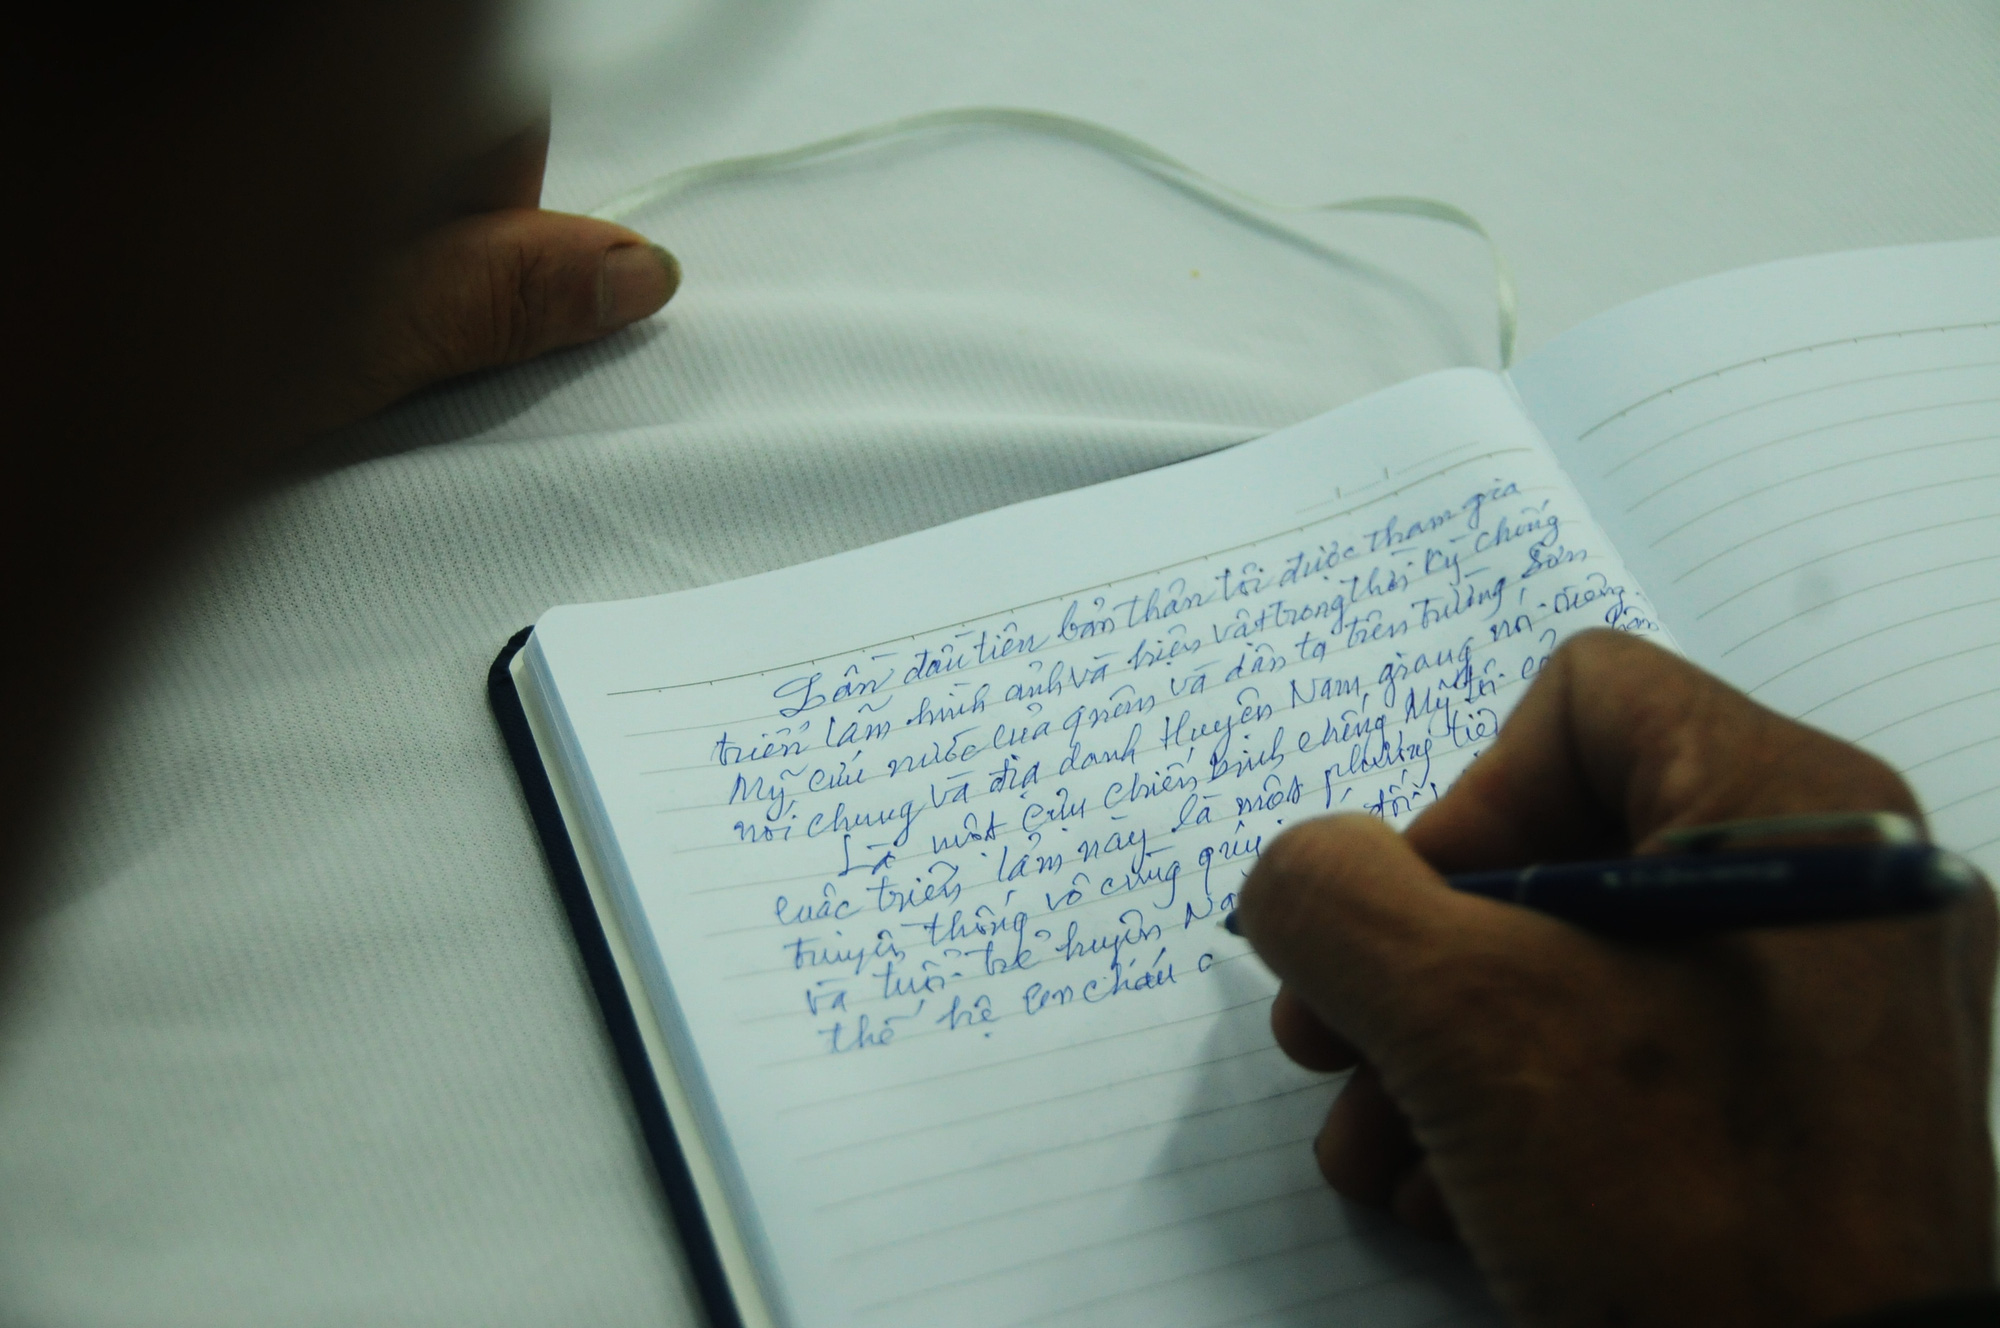 Lần đầu tiên bản thân tôi được tham gia
triển lãm hình ảnh và hiện vật trong thời kỳ chống
Mỹ cứu nước của quân và dân ta trên Trường Sơn
nói chung và địa danh Huyện Nam giang nói riêng.
Là một cựu chiến binh chống Mỹ tôi
cuộc triển lảm này là một phương tiện
truyền thống vô cùng quý đối
và tuổi trẻ huyện Na
thế hệ con cháu